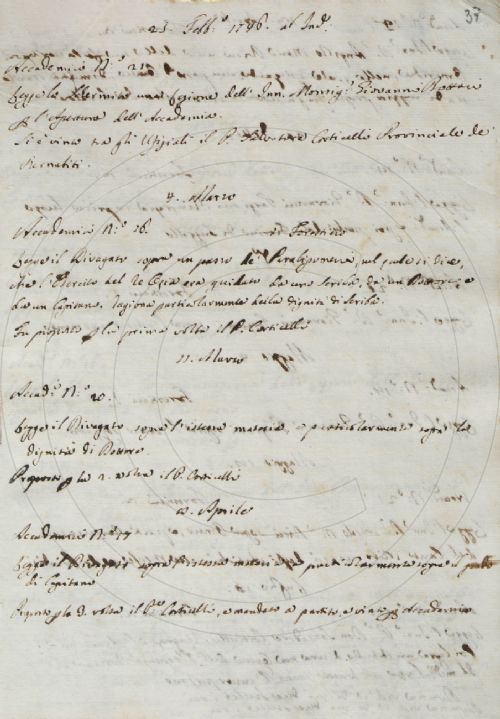 37
23. Febb.º 1746. al Ind.
Accademici N.º 21.
Legge la una lezione dell' Inn. Monsig.r Giovanni Bottari
p l'Apertura dell' Accademia.
Si è vinto tra gli Ufiziali il P. Salvatore Corticelli Provinciale de
Bernabiti.
4. Marzo
Accademici N.º 16.
Legge il Divagato sopra un passo de Paralipomeni, nel quale si dice,
che l'Esercito del Re era guidato da uno Scriba, da un
da un Capitano. Ragiona particolarmente della dignità di Scriba.
Fu proposto p la prima volta il P. Corticelli
11. Marzo
Acad.i N.º 20.
Legge il Divagato sopra l'istessa materia, e particolarmente sopra la
dignità di Dottore.
Proposto p la 2. volta il P. Corticelli
Aprile
Accademici N.º 17
Legge il Divagato sopra l'istessa materia, e particolarmente sopra il
di Capitano
Proposto p la 3. volta il P. Corticelli, e mandato a partito, e vinto p Accademico